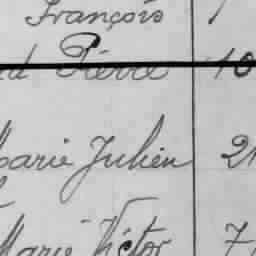 François
Pierre 10
Marie Julien 21
Marie Victor 7